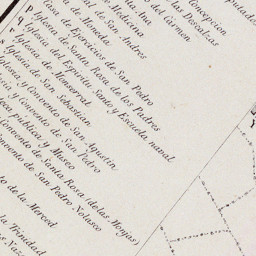 Concepcion
las Descalzas
del Carmen
Medicina
de San Andres
Casa de Moneda
Casa de Exercicios de San Pedro
p Iglesia de Santa Rosa de los Padres
q Iglesia del Espiritu Santo y Escuela naval
r Iglesia de Monserrat
s Iglesia de San Sebastian
Iglesia y Convento de San Agustin
y Convento de San Pedro
publica y Museo
Convento de Santa Rosa (de las Monjas)
Convento de San Pedro Nolasco
to de la Merced
la Trinidad